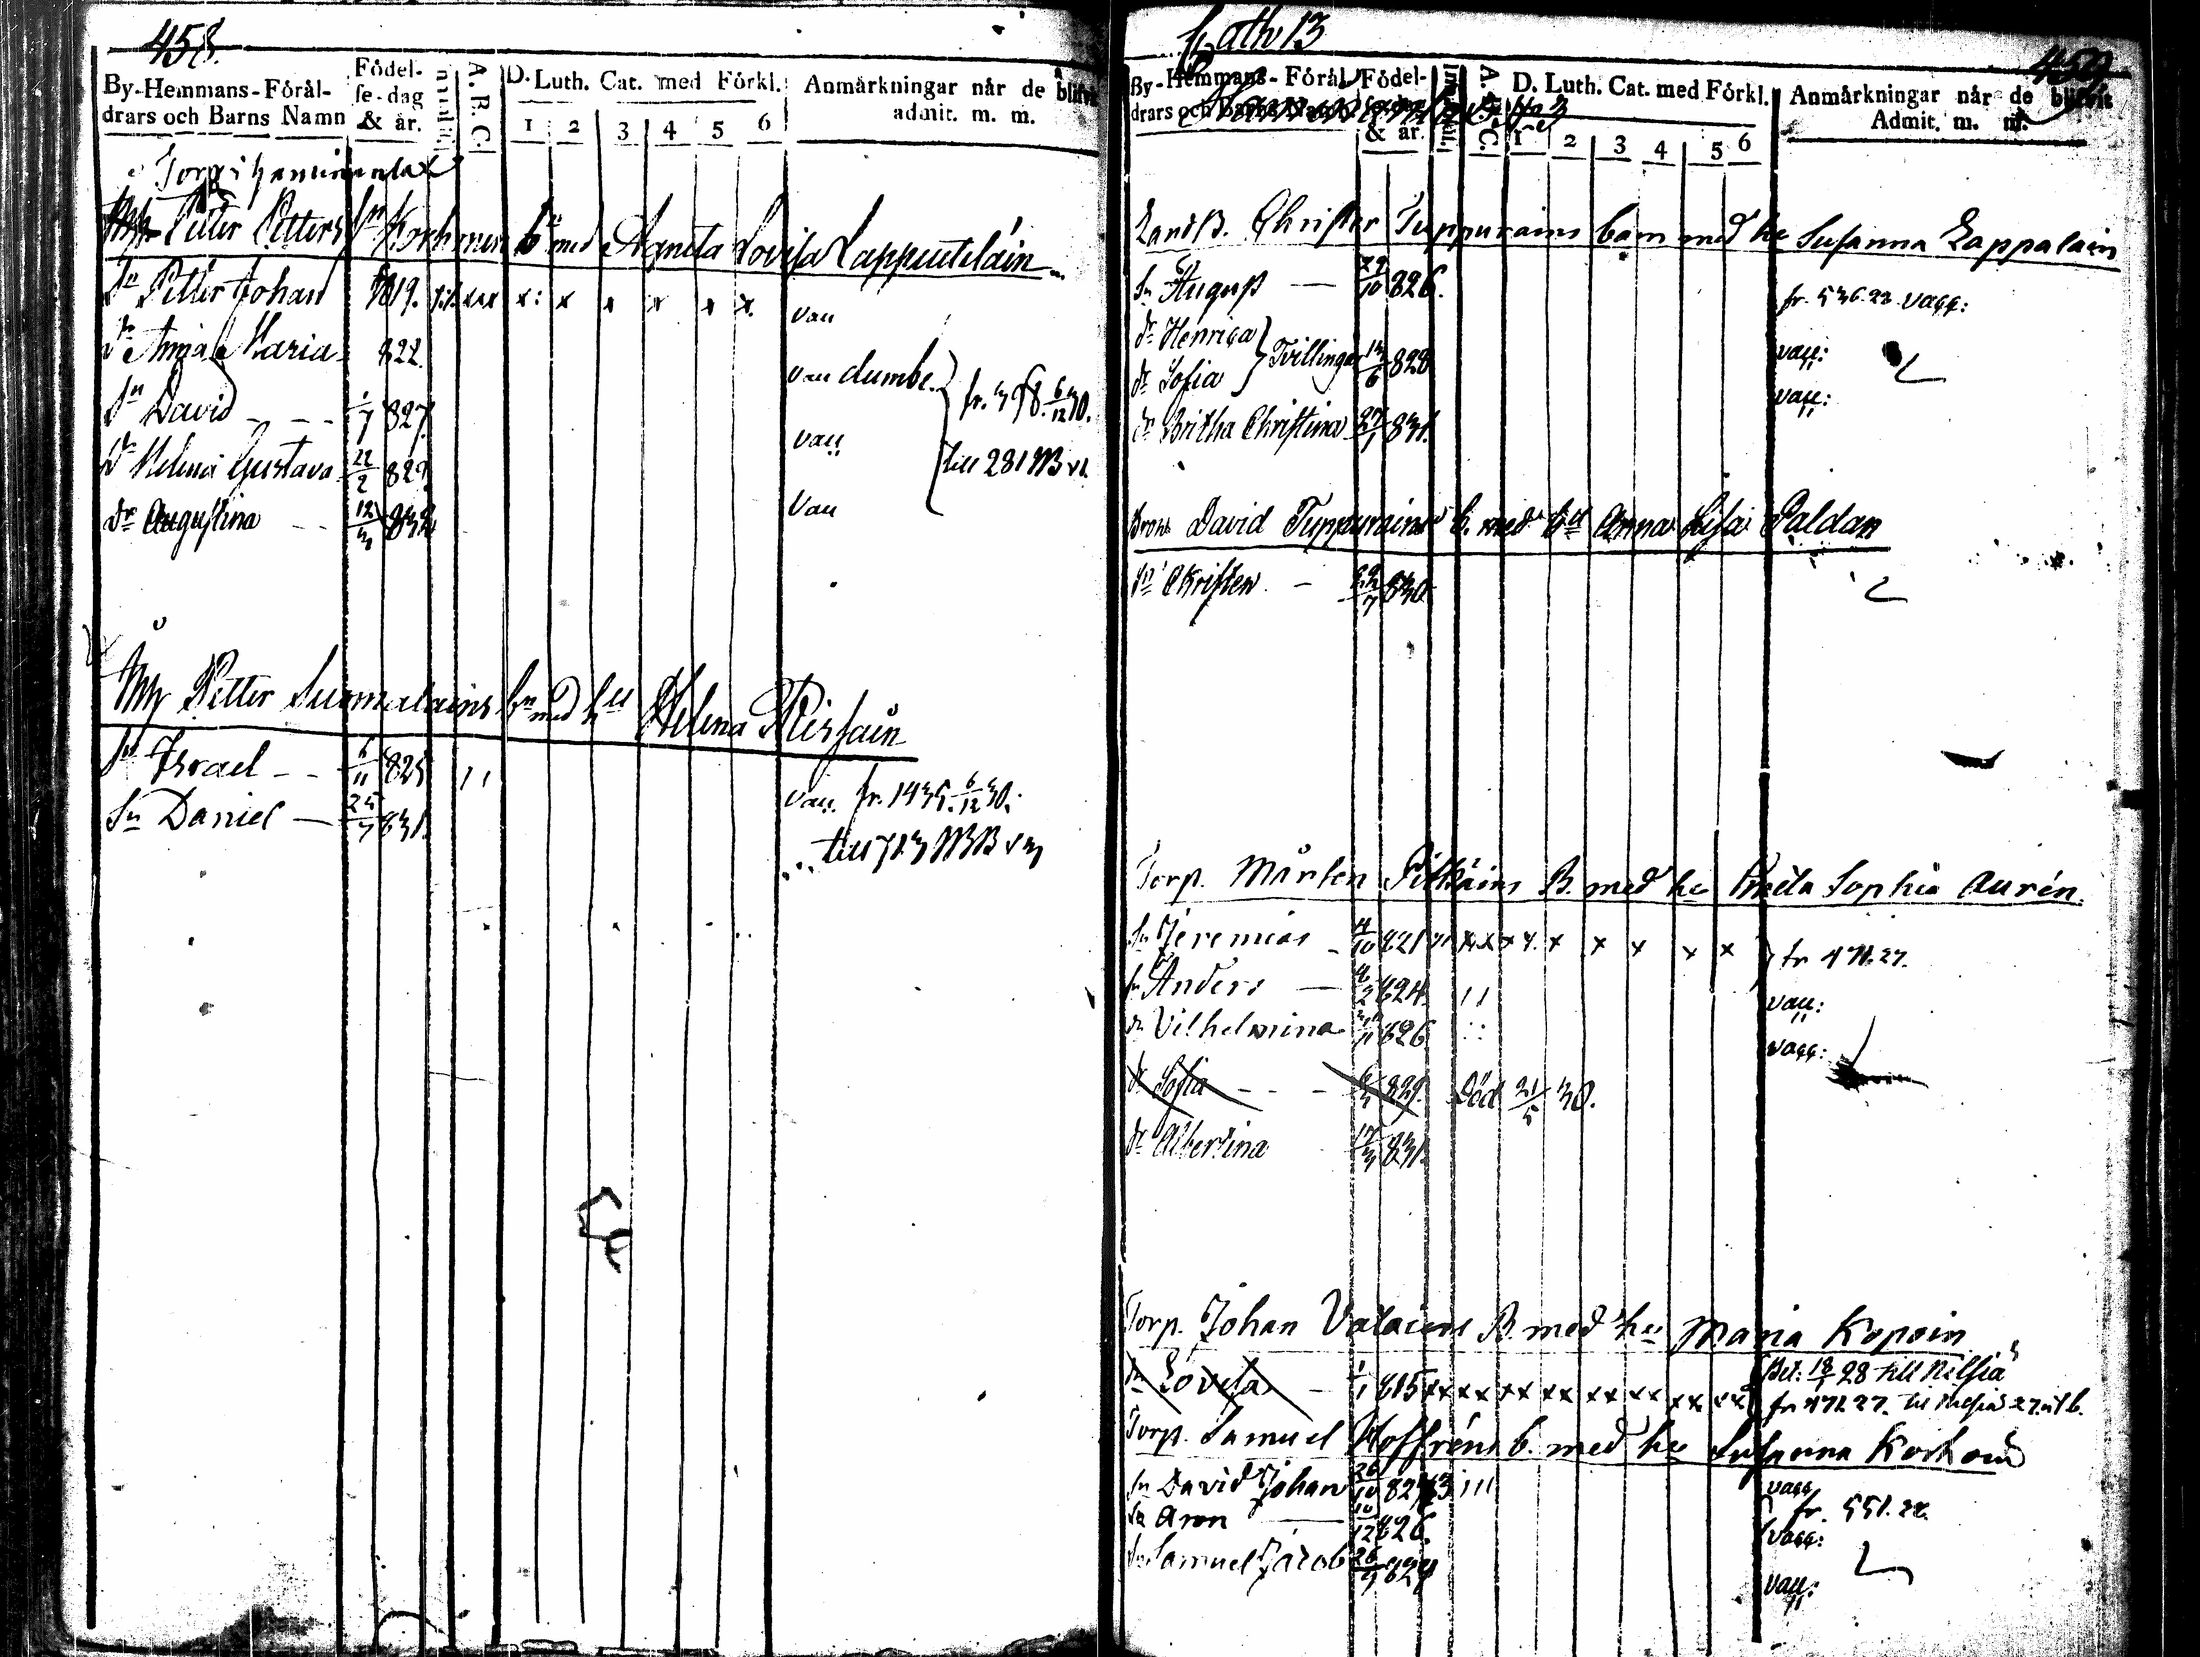 458.
By-Hemmans-Förål-
drars och Barns Namn
Födel-
se-dag
& år.
A. B. C.
D. Luth. Cat. med Förkl.
1 2 3 4 5 6
Anmårkningar når de blifvit
admit. m. m.
Petter Petters Sn Korhonens bn med Agneta Lovisa Lappeteläin
Sn Petter Johan 819. x: x x x x x vau
dr Anna Maria 822. vau dumbe.
Sn David - - - 1/7 827. fr. 398. 6/12 30.
dr Helena Gustava 22/2 829. vau till 281 MB
dr Augustina - - 12/3 832 vau
Petter Surmalains bn med hu Helena
Sn Israel - - 6/11 825 ı ı vau. fr. 1435. 6/12 30.
Sn Daniel - 25/7 831. till 713 MB
Cath 13
459
By-Hemmans-Förål
drars och Barns
Födel-
& år.
A. B. C.
D. Luth. Cat. med Förkl.
1 2 3 4 5 6
Anmårkningar når de blifvit
Admit. m. m.
LandB. Christer Tuppurains barn med hu Susanna Lappalain
Sn August - 29/10 826. fr. 536.22. vacc:
dr Henrica
dr Sofia } Tvillingar 13/6 828 vacc:
vacc:
dr Britha Christina 27/1 831.
David Tuppurains b. med hu Anna Lisa Paldan
Sn Christer - 29/7 830
Torp. Mårten Pitkäins B. med hu Greta Sophia Aurén.
Sn Jeremias - 4/10 821 x x x x x x x x x fr 471.27.
Sn Anders - 4/2 824 ı ı vacc:
dr Vilhelmina 11 826 : : vacc:
dr Sofia - - - 829. Död 21/5 30.
dr Albertina 17/3 831.
Torp. Johan Valains B. med hu Maria Kopoin
dr Lovisa - 1/1 815 xx xx xx xx xx xx xx xx Bet: 18/1 28 till Nilsiä
fr 471.27. till Nilsiä 27.
Torp. Samuel Hoffréns b. med hu Susanna Korhoin
Sn David Johan 26/10 823 ı ı ı vacc
fr. 551.28.
Sn Aron 10/12 826. vacc:
Sn Samuel Jacob 26/9 829 vacc: